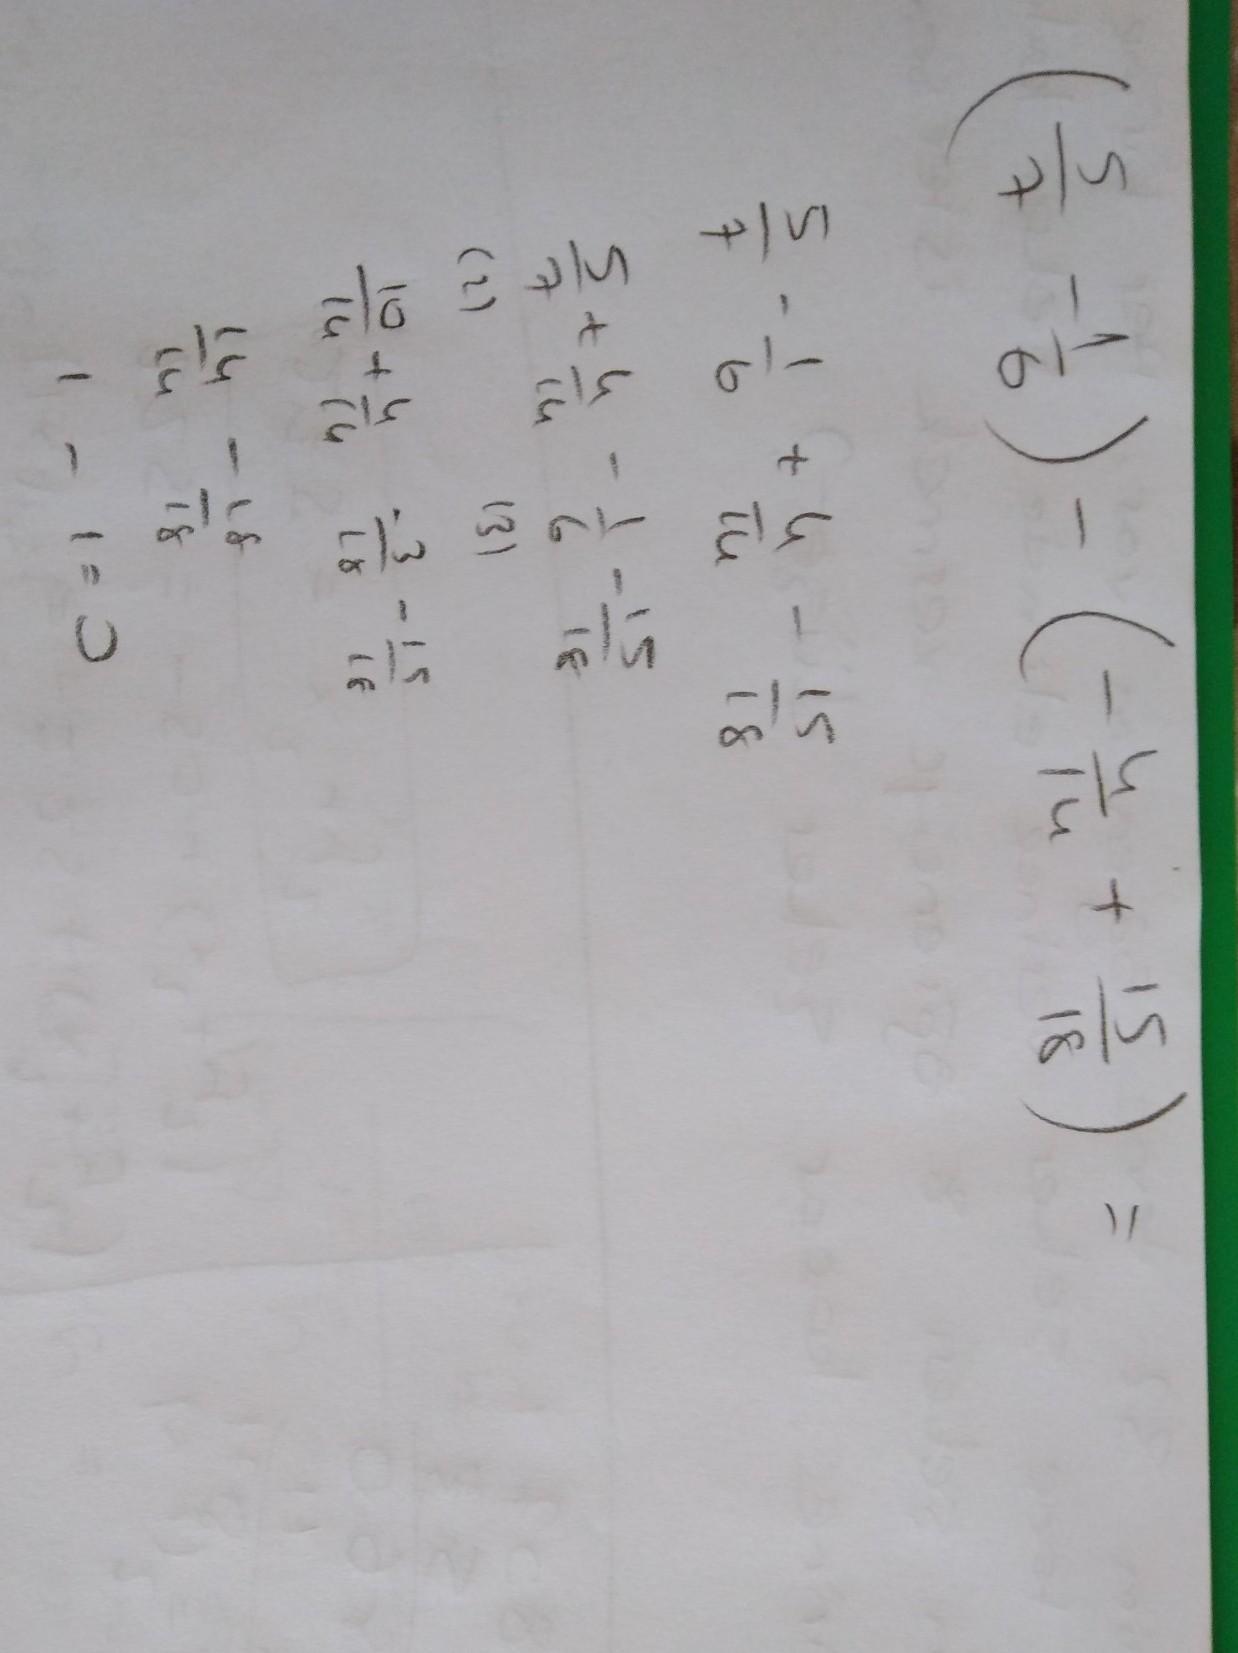 (5/7 - 1/6) - (-4/14 + 15/18) =
5/7 - 1/6 + 4/14 - 15/18
5/7 + 4/14 - 1/6 - 15/18
(2) (3)
10/14 + 4/14 - 3/18 - 15/18
14/14 - 18/18
1 - 1 = 0